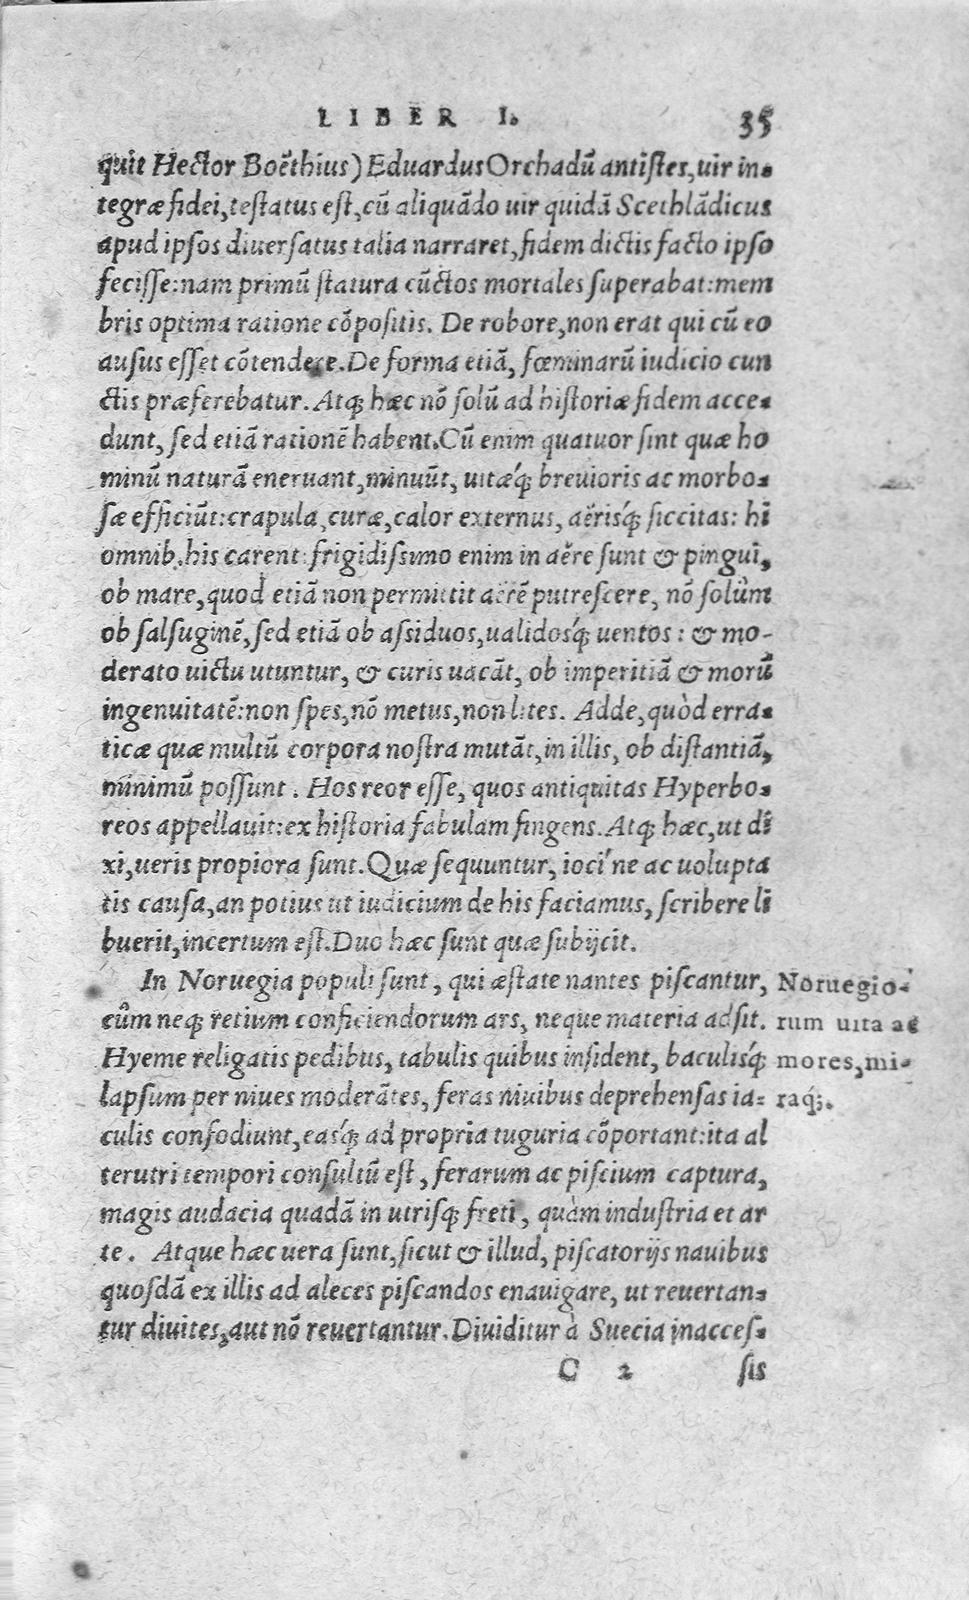 LIBER I. 35
quit Hector Boëthius) Eduardus Orchadū antistes, uir in-
tegræ fidei, testatus est, cū aliquādo uir quidā Scethlādicus
apud ipsos diuersatus talia narraret, fidem dictis facto ipso
fecisse: nam primū statura cūctos mortales superabat: mem
bris optima ratione cōpositis. De robore, non erat qui cū eo
ausus esset cōtendere. De forma etiā, fœminarū iudicio cun
ctis præferebatur. Atq; hæc nō solū ad historiæ fidem acce-
dunt, sed etiā rationē habent. Cū enim quatuor sint quæ ho
minū naturā eneruant, minuūt, uitæq́; breuioris ac morbo-
sæ efficiūt: crapula, curæ, calor externus, aërisq́; siccitas: hi
omnib. his carent: frigidissimo enim in aëre sunt & pingui,
ob mare, quod etiā non permittit aërē putrescere, nō solùm
ob salsuginē, sed etiā ob assiduos, ualidosq́; uentos: & mo-
derato uictu utuntur, & curis uacāt, ob imperitiā & morū
ingenuitatē: non spes, nō metus, non lites. Adde, quòd erra-
ticæ quæ multū corpora nostra mutāt, in illis, ob distantiā,
minimū possunt. Hos reor esse, quos antiquitas Hyperbo-
reos appellauit: ex historia fabulam fingens. Atq; hæc, ut di
xi, ueris propiora sunt. Quæ sequuntur, ioci ne ac uolupta
tis causa, an potius ut iudicium de his faciamus, scribere li
buerit, incertum est. Duo hæc sunt quæ subijcit.
In Noruegia populi sunt, qui æstate nantes piscantur,
cùm neq; retium conficiendorum ars, neque materia adsit.
Hyeme religatis pedibus, tabulis quibus insident, baculisq́;
lapsum per niues moderātes, feras niuibus deprehensas ia-
culis confodiunt, easq́; ad propria tuguria cōportant: ita al
terutri tempori consultū est, ferarum ac piscium captura,
magis audacia quadā in utrisq; freti, quàm industria et ar
te. Atque hæc uera sunt, sicut & illud, piscatorijs nauibus
quosdā ex illis ad aleces piscandos enauigare, ut reuertan-
tur diuites, aut nō reuertantur. Diuiditur à Suecia inacces-
C 2 sis
Noruegio-
rum uita ac
mores, mi-
raq́;.